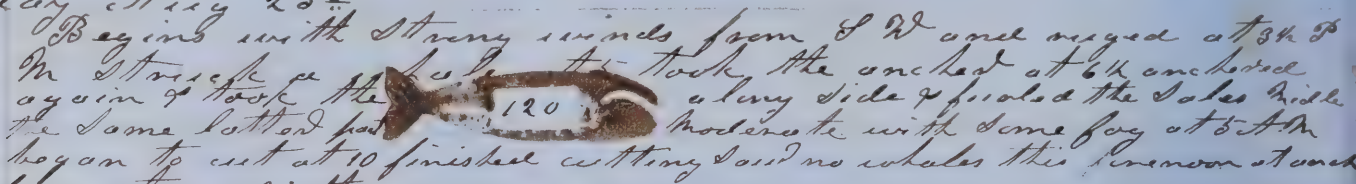 Begins with Strong winds from S W and ruged at 3h P
M Struck a took the anchor at 6h anchored
again & took the along side & furled the Sales Middle
the Same latter part Moderate with Some fog at 5 A M
began to cut at 10 finished cutting Saw no whales this forenoon at
120